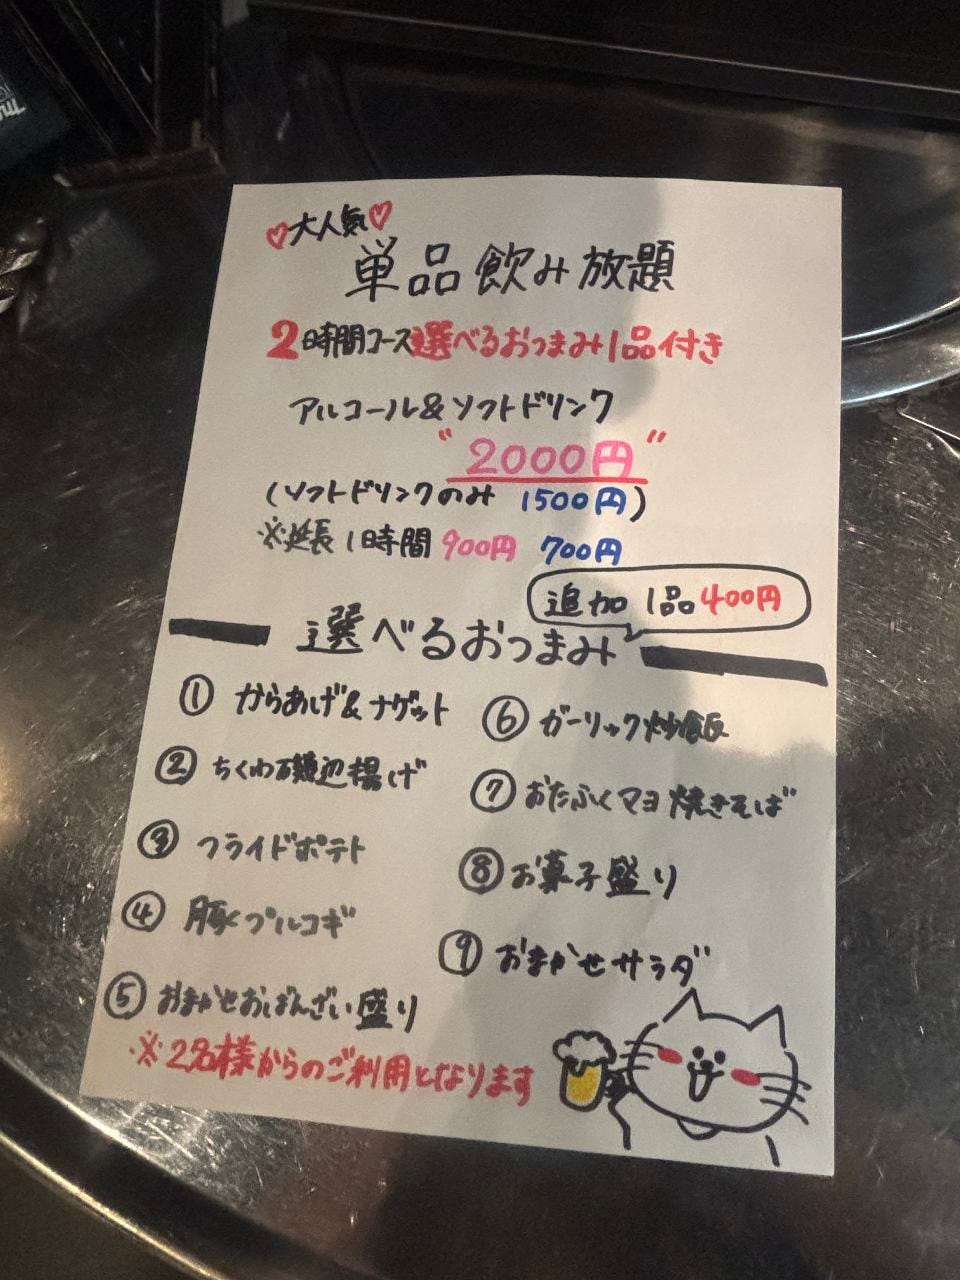 ♡大人気♡
単品飲み放題
2時間コース選べるおつまみ1品付き
アルコール&ソフトドリンク
"2000円"
(ソフトドリンクのみ 1500円)
※延長1時間 900円 700円
追加 1品400円
選べるおつまみ
① からあげ&ナゲット
② ちくわ磯辺揚げ
③ フライドポテト
④ 豚プルコギ
⑤ おまかせおばんざい盛り
⑥ ガーリック炒飯
⑦ おたふくマヨ焼きそば
⑧ お菓子盛り
⑨ おまかせサラダ
※2名様からのご利用となります